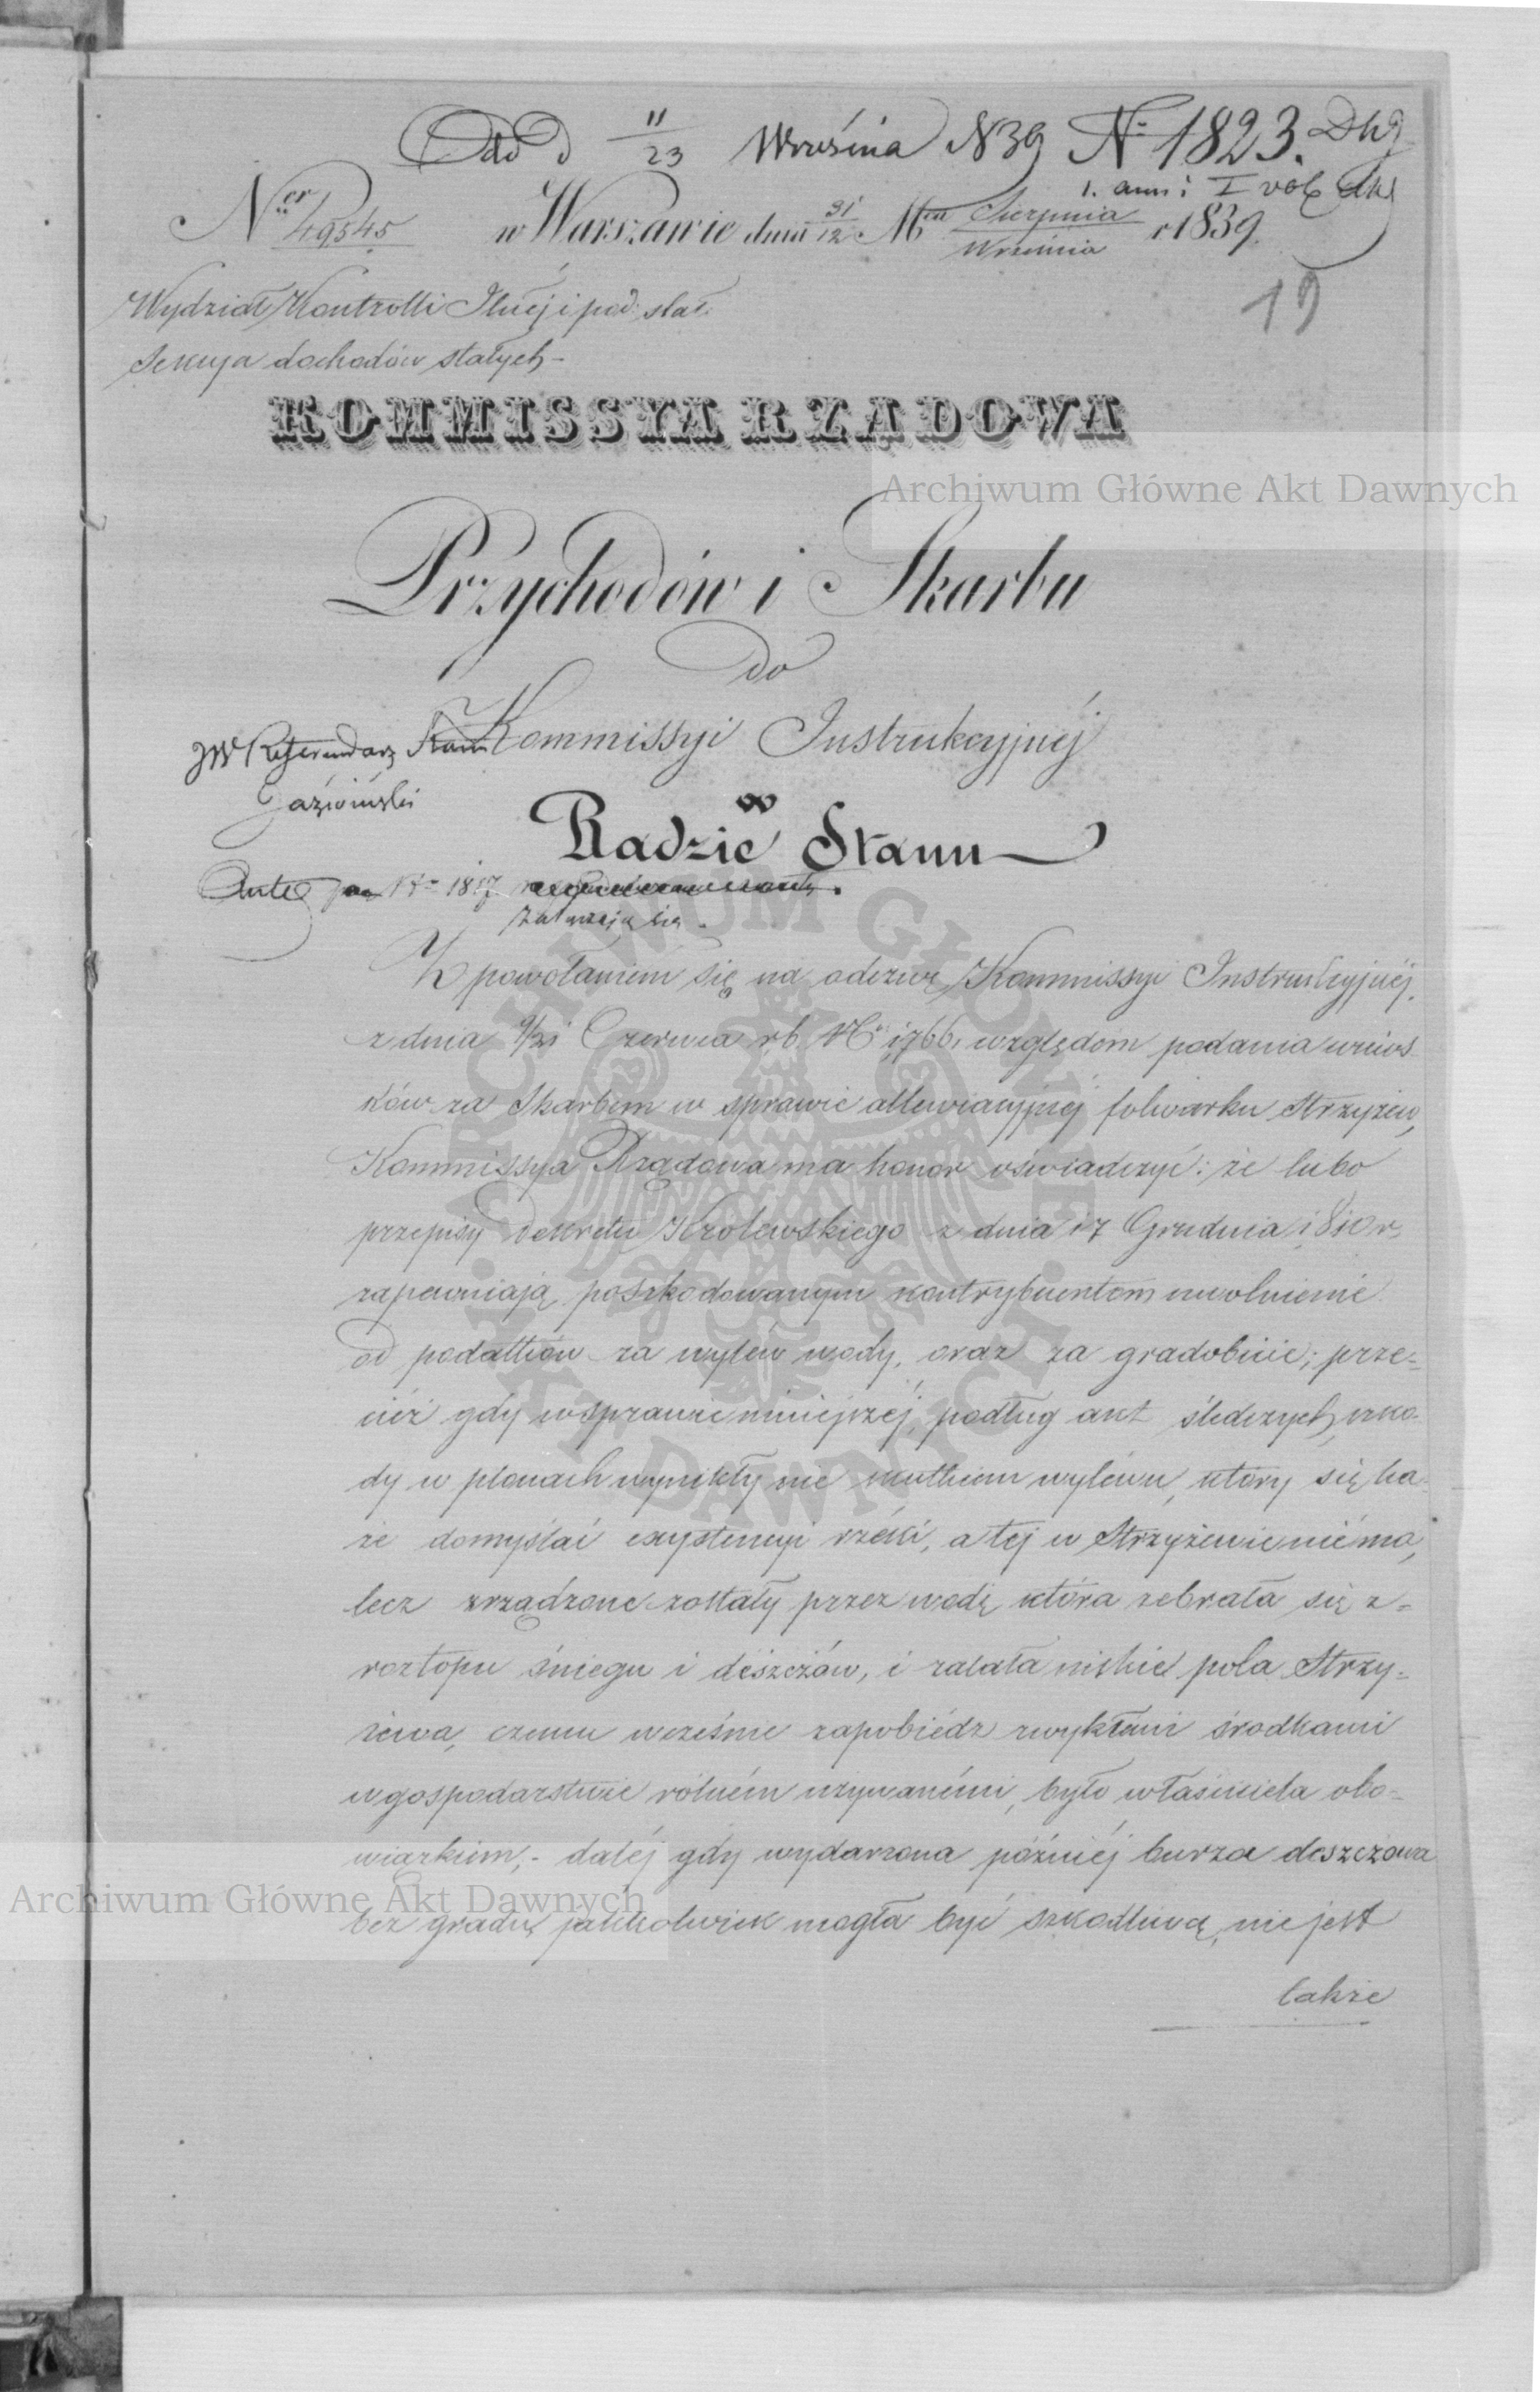 Odd d 11/23 Września 839 N 1823. Dhg
1. ann: I vol.
Ner 49545 w Warszawie dnia 31/12 Mca Sierpnia/Września r 1839.
19
Wydział Kontrolli Ilnéj i pod: stał:
Sekcya dochodów stałych -
KOMMISSYA RZĄDOWA
Archiwum Główne Akt Dawnych
Przychodów i Skarbu
do
Kommissyi Instrukcyjnéj
JW Referendarz Stanu
Jaźwiński
w
Radzie Stanu
N 1817
załączają się.
Z powołaniem się na odezwę Kommissyi Instrukcyjnéj,
z dnia 9/21 Czerwca r.b. N 1766, względem podania wnios-
ków za Skarbem w sprawie allewiacyjnéj folwarku Strzyżew,
Kommissya Rządowa ma honor oświadczyć: że lubo
przepisy Dekretu Królewskiego z dnia 17 Grudnia 1810 r.
zapewniają poszkodowanym kontrybuentom uwolnienie
od podatków za wylew wody, oraz za gradobicie; prze-
cież gdy w sprawie niniejszéj, podług akt śledczych, szko-
dy w plonach wynikły nie skutkiem wylewu, który się ka-
że domyślać exystencyi rzéki, a téj w Strzyżewie niéma,
lecz zrządzone zostały przez wodę która zebrała się z=
roztopu śniegu i deszczów, i zalała niskie pola Strzy=
żewa, czemu wcześnie zapobiédz zwykłemi środkami
w gospodarstwie rolném używanémi, było właściciela obo=
wiązkiem; - daléj gdy wydarzona późniéj burza deszczowa
Archiwum Główne Akt Dawnych
bez gradu, jakkolwiek mogła być szkodliwą, nie jest
także
ARCHIWUM GŁÓWNE AKT DAWNYCH